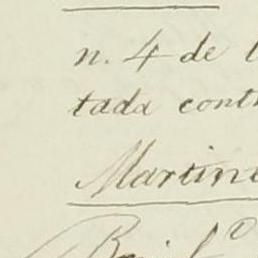 n. 4 de
tada cont
Martin